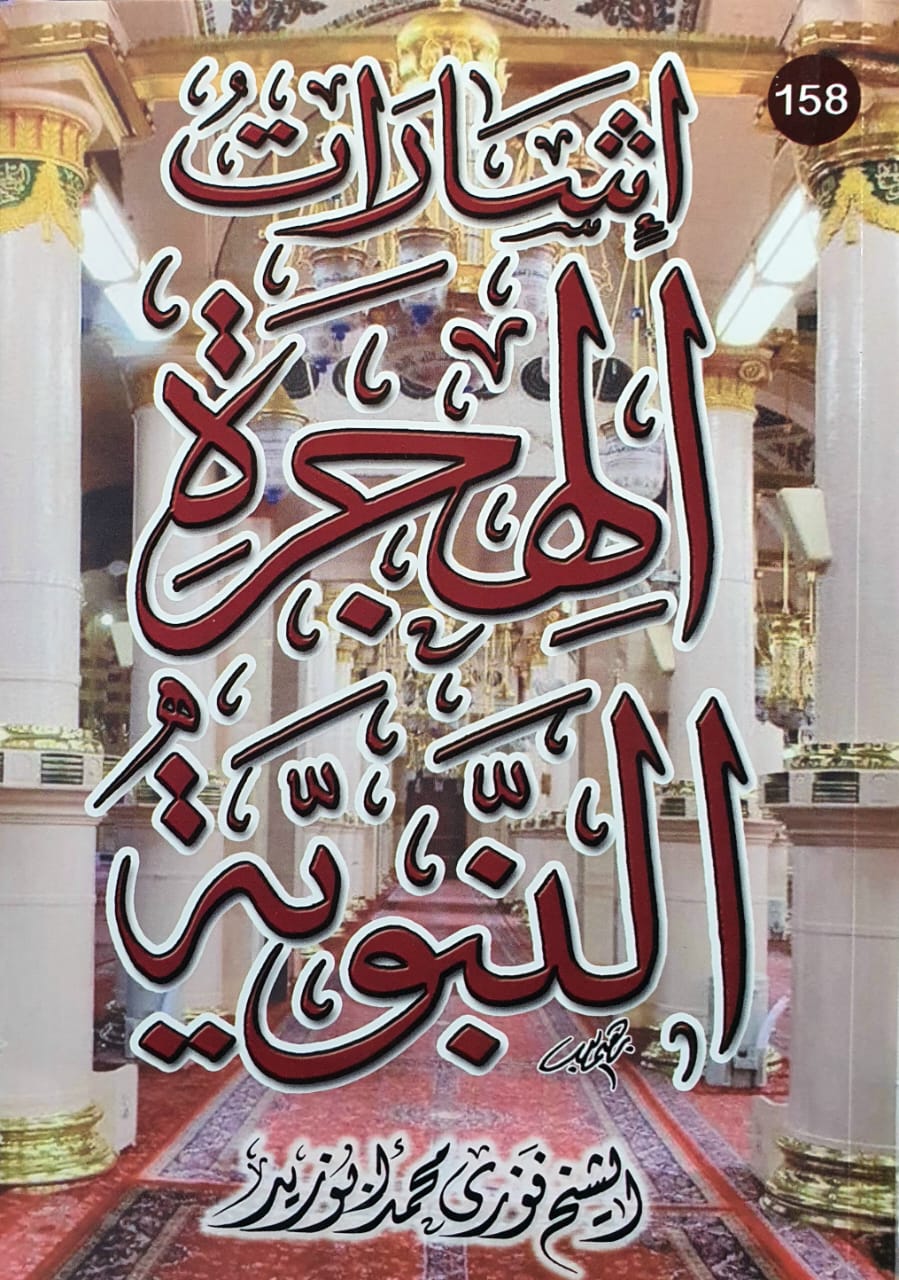 158
إِشَارَاتُ
الهِجْرَةِ
النَّبَوِيَّة
الشيخ فوزى محمد أبوزيد